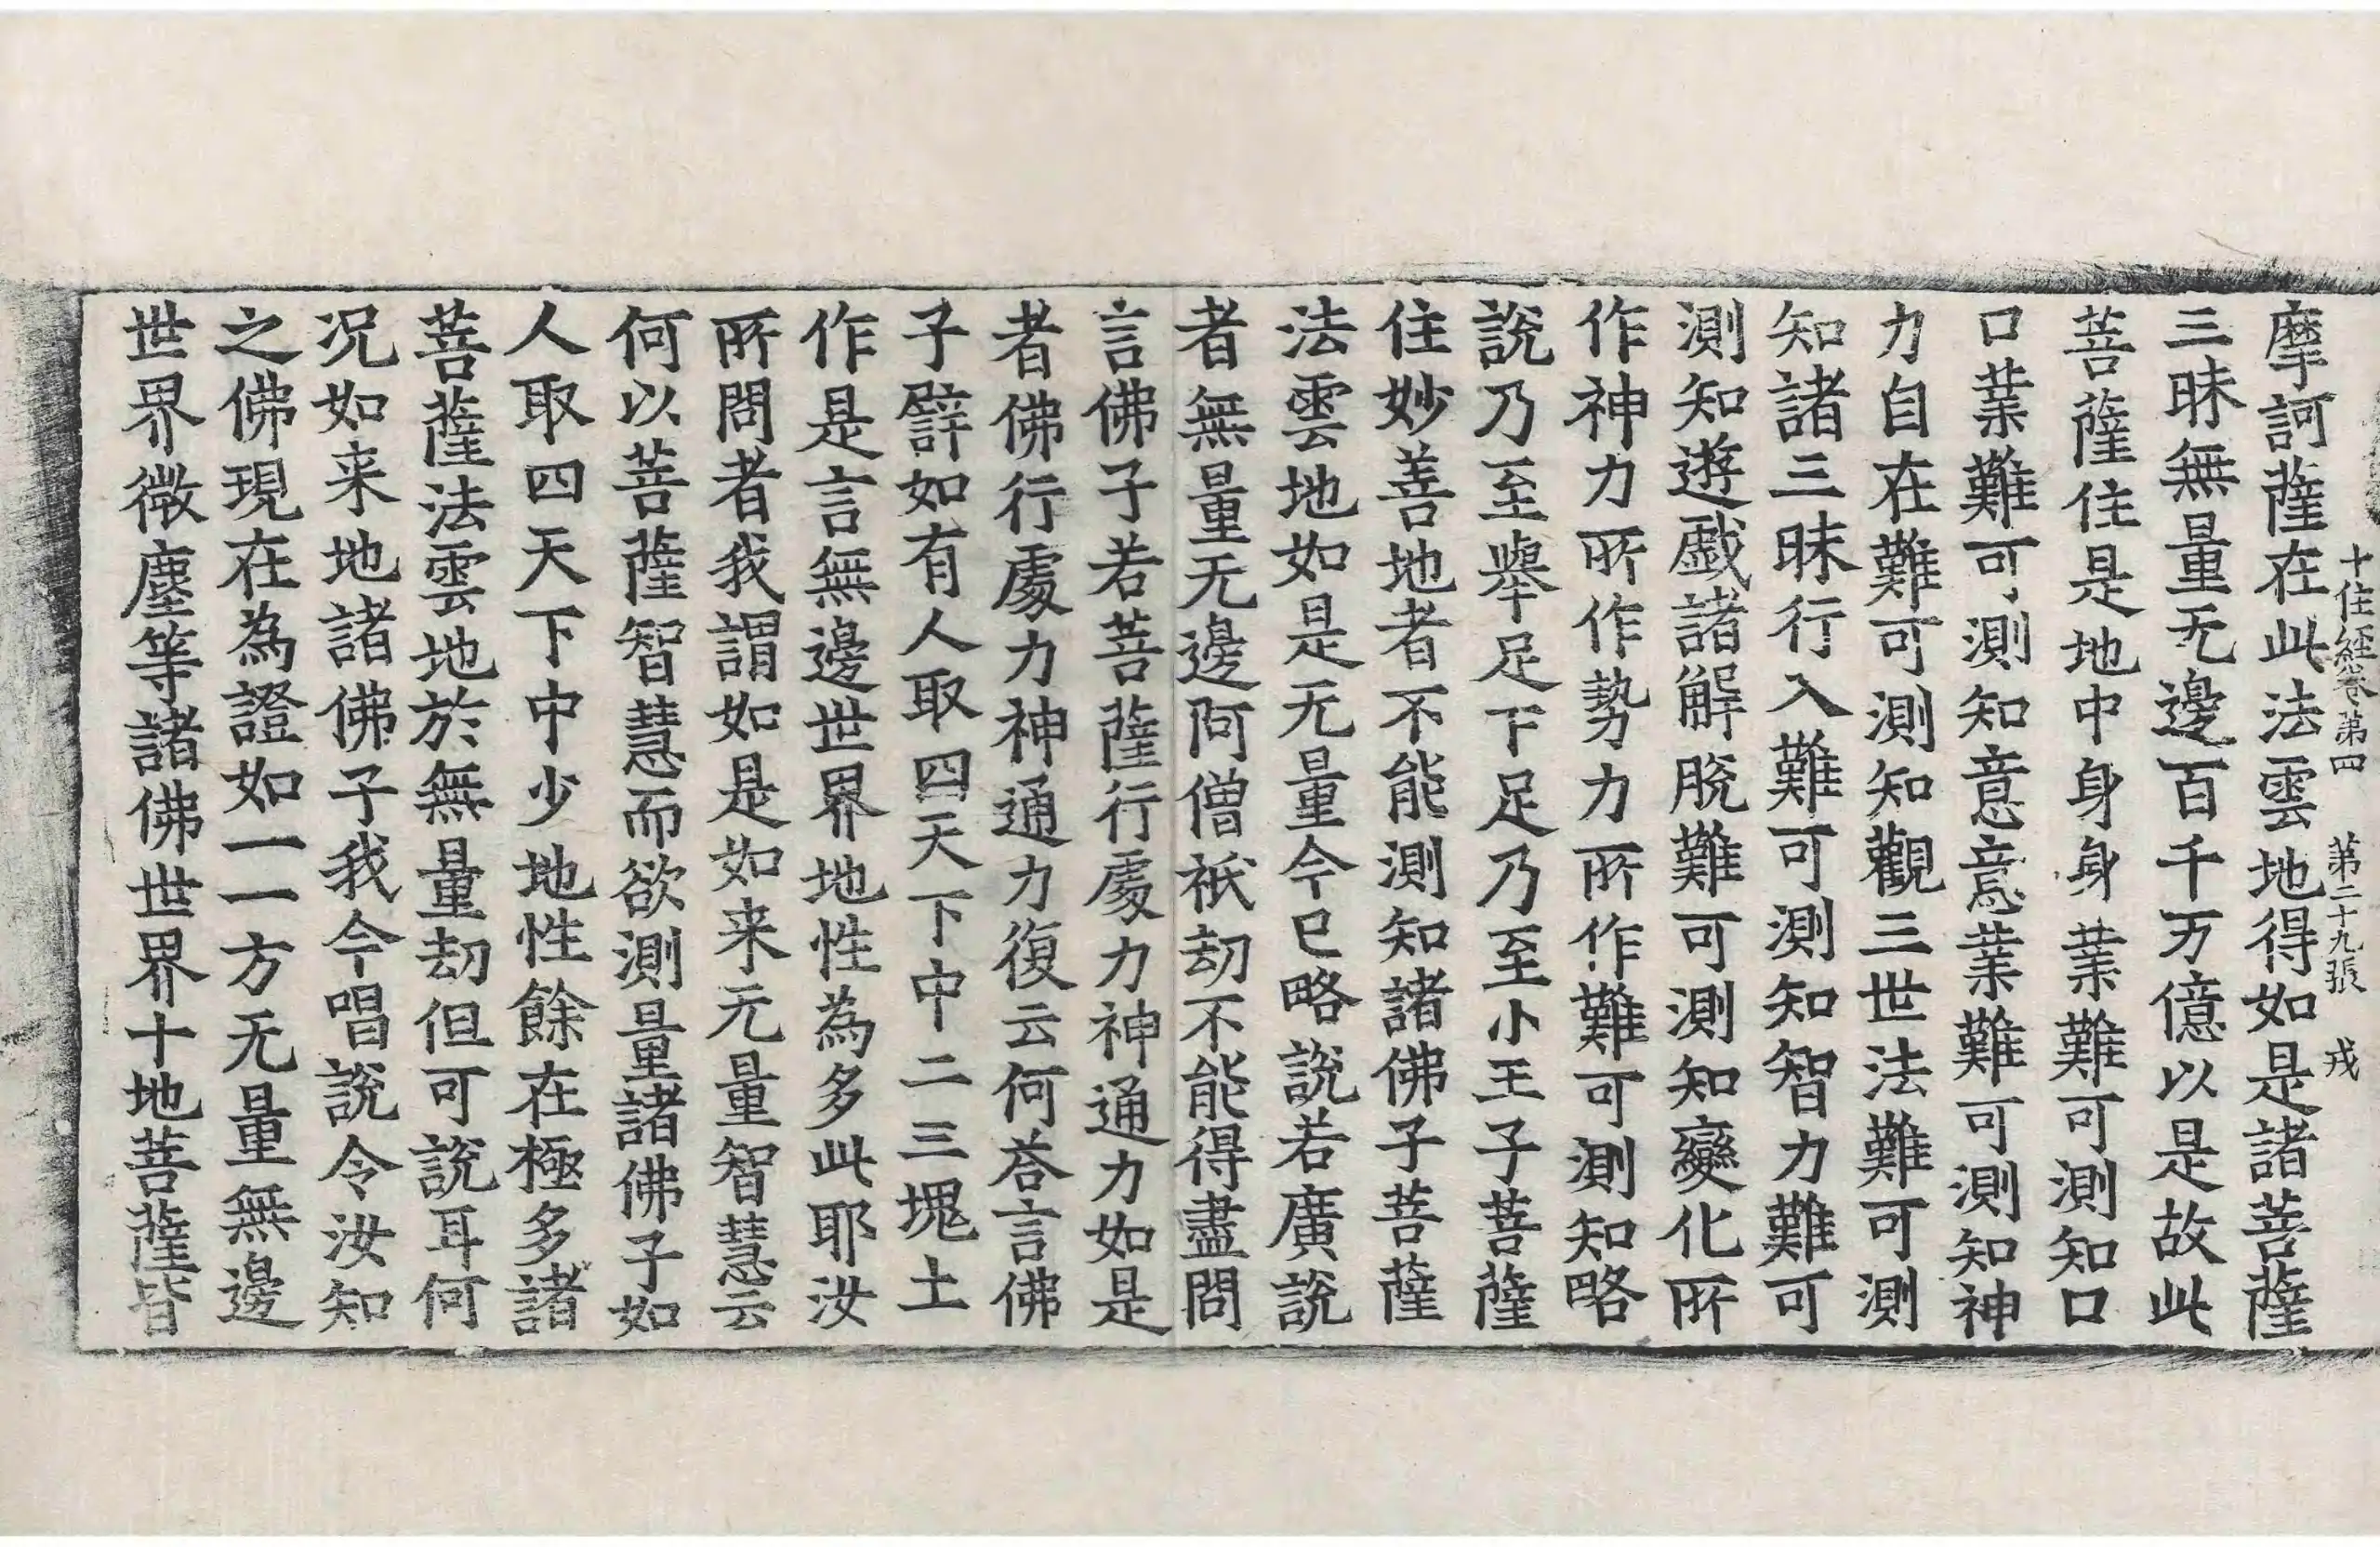 十住経卷第四 第二十九張 戎
摩訶薩在此法雲地得如是諸菩薩
三昧無量无邊百千万億以是故此
菩薩住是地中身身業難可測知口
口業難可測知意意業難可測知神
力自在難可測知觀三世法難可測
知諸三昧行入難可測知智力難可
測知遊戲諸解脫難可測知變化所
作神力所作勢力所作難可測知略
說乃至舉足下足乃至小王子菩薩
住妙善地者不能測知諸佛子菩薩
法雲地如是无量今已略說若廣說
者無量无邊阿僧祇劫不能得盡問
言佛子若菩薩行處力神通力如是
者佛行處力神通力復云何荅言佛
子譬如有人取四天下中二三塊土
作是言無邊世界地性為多此耶汝
所問者我謂如是如来无量智慧云
何以菩薩智慧而欲測量諸佛子如
人取四天下中少地性餘在極多諸
菩薩法雲地於無量劫但可說耳何
況如来地諸佛子我今唱說令汝知
之佛現在為證如一一方无量無邊
世界微塵等諸佛世界十地菩薩皆